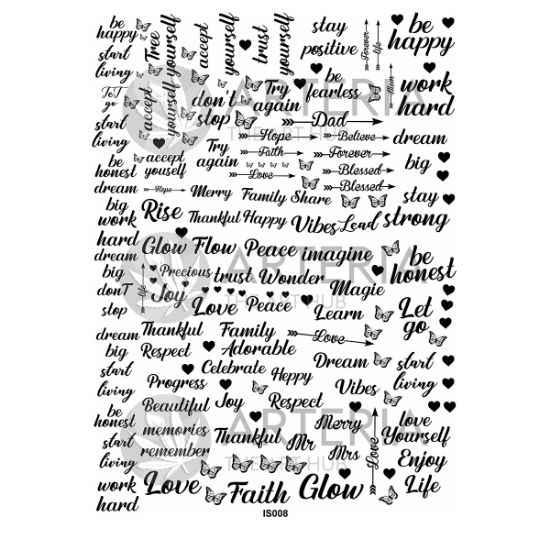 be
happy
start
living
Tree
yourself
accept
yourself
trust
yourself
stay
positive
Forever
life
be
happy
LeT
go
accept
yourself
yourself
don't
stop
Try
again
be
fearless
Mom
work
hard
start
living
Dad
Hope
Believe
dream
Faith
Forever
big
be
honest
accept
youself
Try
again
Love
Blessed
Blessed
dream
big
Hope
Merry
Family
Share
stay
strong
work
hard
Rise
Thankful
Happy
Vibes
Lead
Glow
Flow
Peace
imagine
be
honest
dream
big
donT
stop
life
Precious
Joy
trust
Wonder
Magie
Love
Peace
Learn
Let
go
dream
big
Thankful
Family
Love
Respect
Adorable
start
living
Celebrate
Dream
start
living
Progress
Heppy
Vibes
be
honest
Beautiful
memories
remember
Joy
Respect
Merry
love
Yourself
start
living
Thankful
Mr
Mrs
Love
Enjoy
Life
work
hard
Love
Faith
Glow
ARTERIA
THE ART HUB
ARTERIA
THE ART HUB
ARTERIA
THE ART HUB
IS008